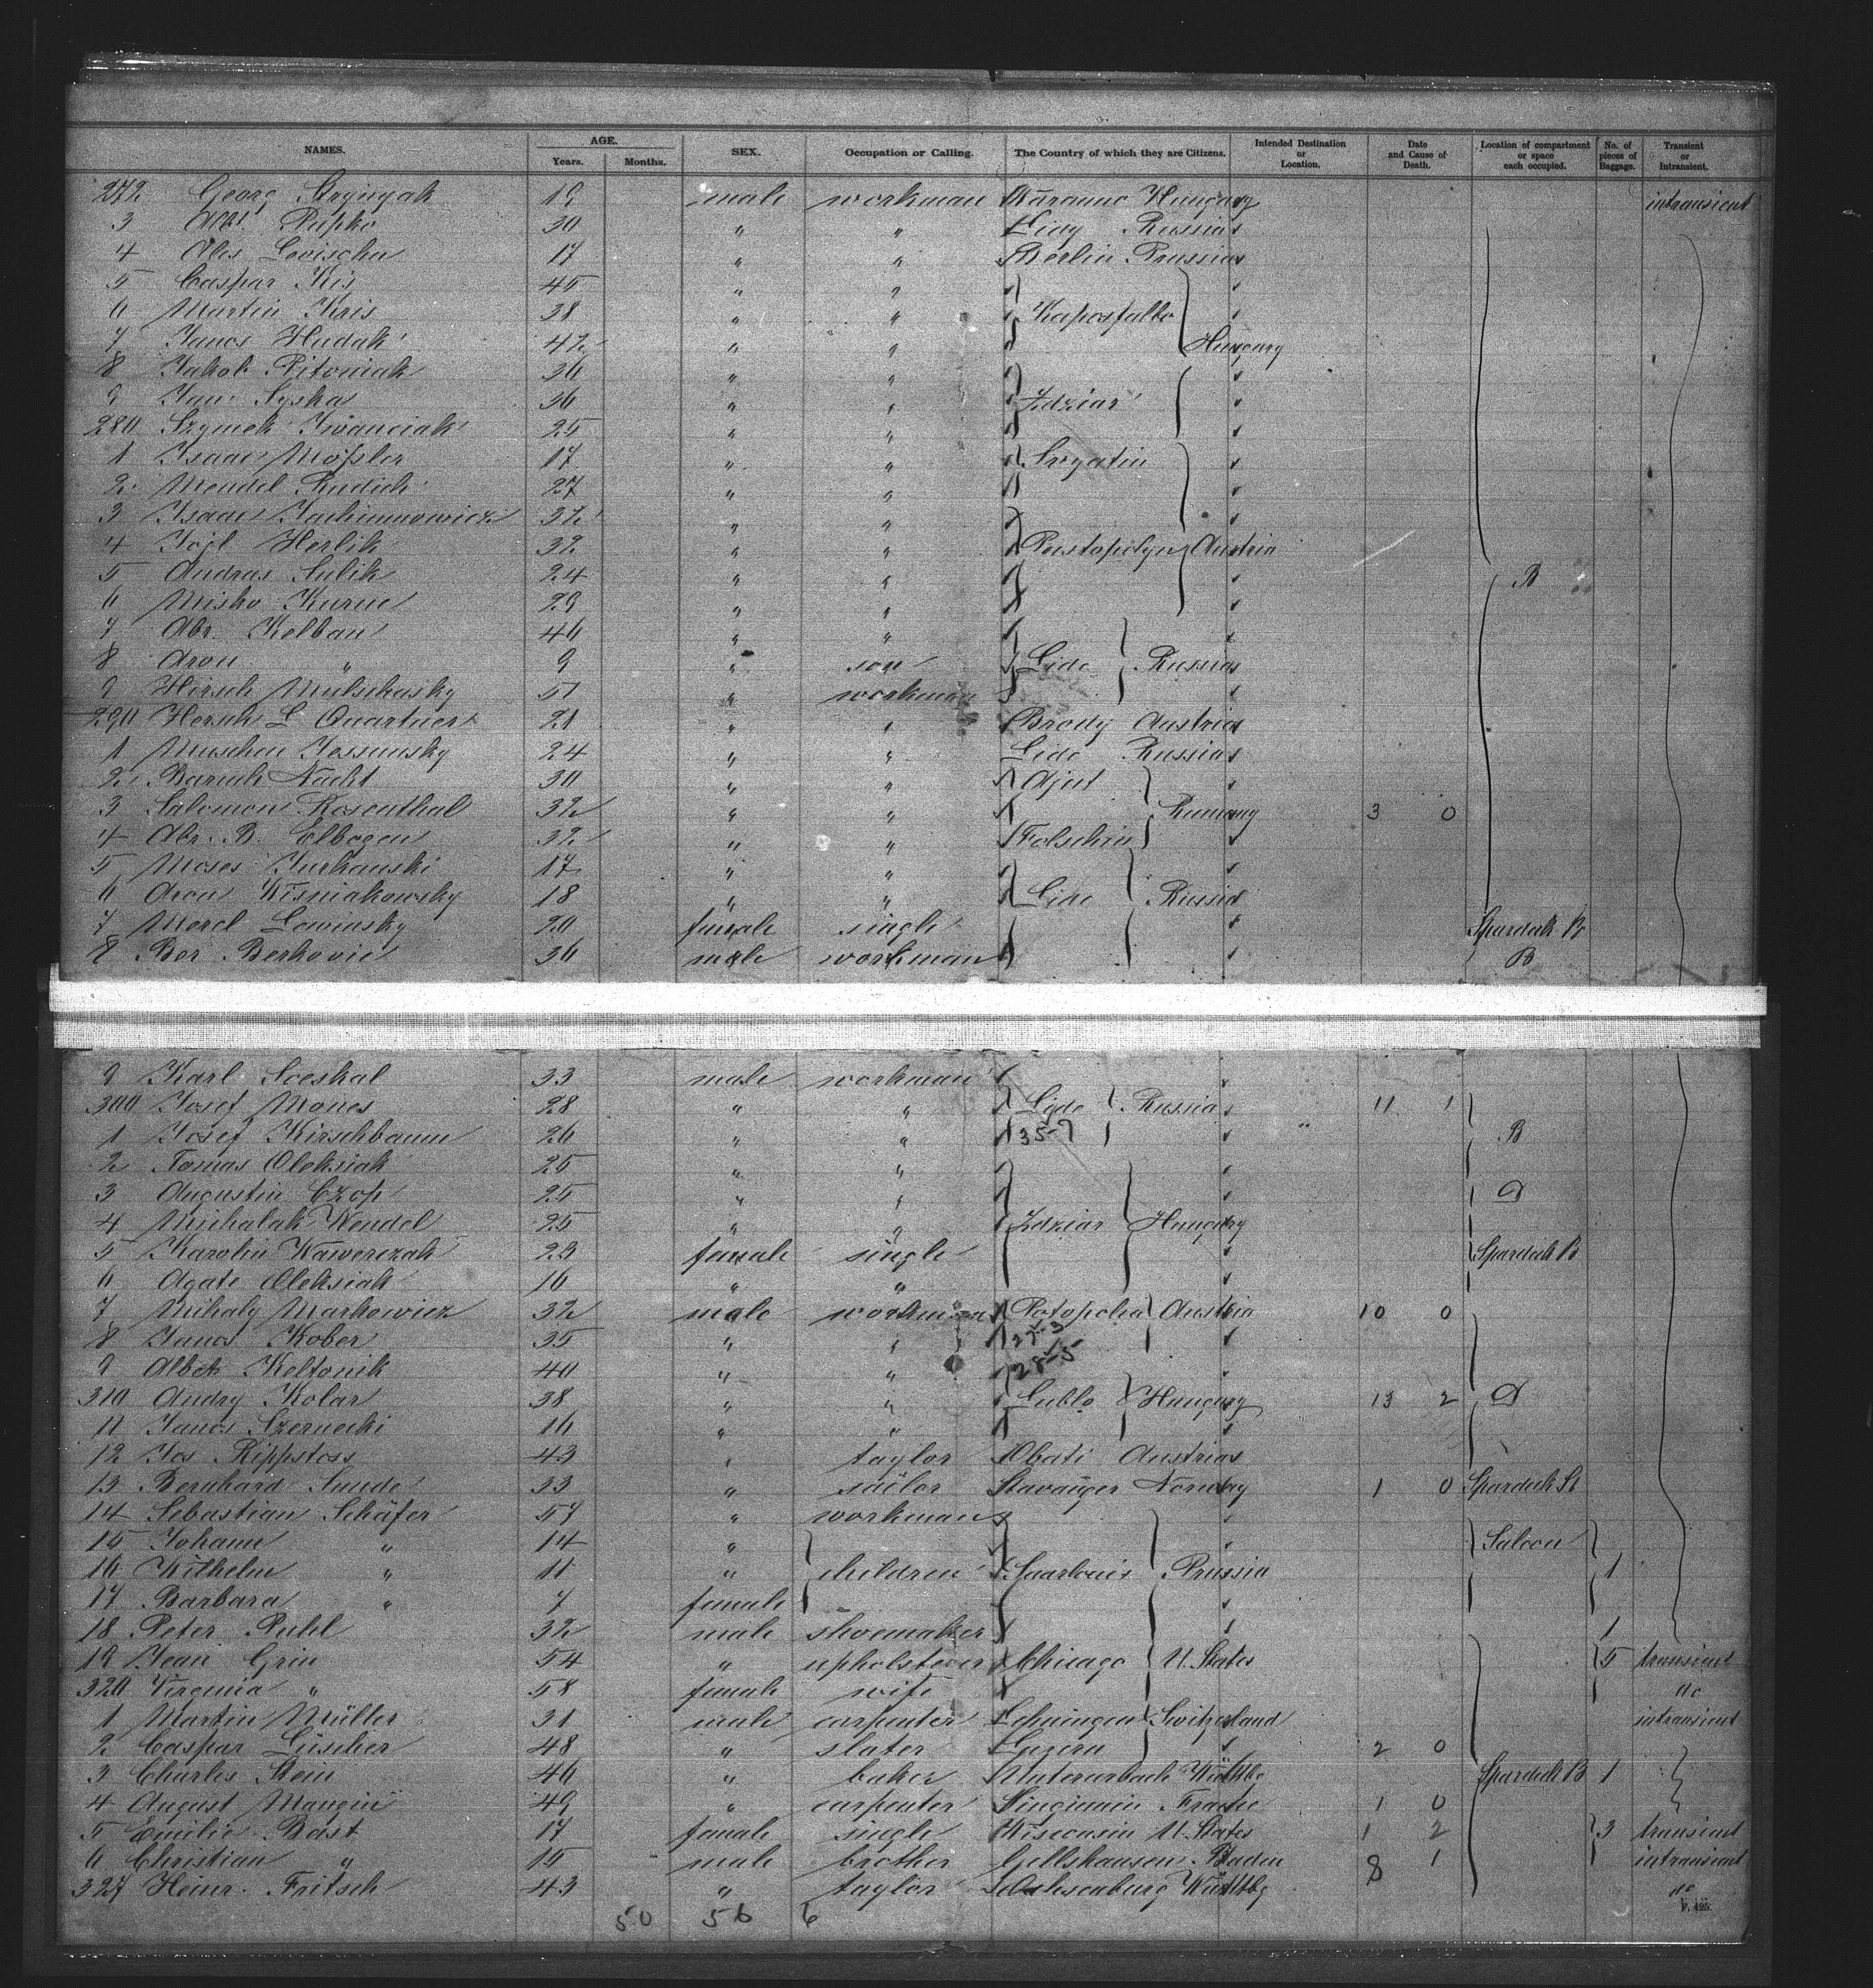 NAMES. AGE. Years. Months. SEX. Occupation or Calling. The Country of which they are Citizens. Intended Destination or Location. Date and Cause of Death. Location of compartment or space each occupied. No. of pieces of Baggage. Transient or Intransient.
272 Georg 19 male workman Hungary intransient
3 Abr. Rupko 30 " " Lidy Russia
4 Abs Lovischu 17 " " Berlin Prussia
5 Caspar Kis 45 " "
6 Martin Kris 38 " " Kaposfalbo
7 Janos Hudak 42 " " Hungary
8 Jakob Pitoniak 36 " "
9 Jan Syska 36 " " Zdziar
280 Szymek Iwanciak 25 " "
1 Isaac Mossler 17 " "
2 Mendel Rudich 27 " "
3 Isaac Jachimowicz 32 " "
4 Joil Herlik 32 " " Austria
5 Andras Sulik 24 " " B
6 Misko Kurue 29 " "
7 Abr. Kelban 46 " "
8 Aron " 9 " son Lido Russia
9 Hirsch Mulschusky 51 " workman
290 Hersch L Quartner 21 " " Brody Austria
1 Muschen Jessunsky 24 " " Lido Russia
2 Baruch Nacht 30 " " Ajut
3 Salomon Rosenthal 32 " " 3 0
4 Abr. B. Elbogen 32 " " Folschin
5 Moses Jurkanski 17 " "
6 Aron Wisniakowsky 18 " " Lido Russia
7 Merel Lewinsky 20 female single Spardeck B
8 Ber Berkovic 36 male workman B
9 Karl Soeskal 33 male workman
300 Josef Mones 28 " " Lido Russia 11 1
1 Josef Kirschbaum 26 " " 35-7 B
2 Tomas Oleksiak 25 " "
3 Augustin Czop 25 " "
4 Mihalak Wendel 25 " " Zdziar Hungary
5 Karolin Wawerczak 23 female single Spardeck B
6 Agate Oleksiak 16 " "
7 Mihaly Markowicz 32 male workman Potopolia Austria 10 0
8 Janos Kober 35 " " 27-3
9 Albet Keltonik 40 " " 28-5
310 Andry Kolar 38 " " Lublo Hungary 13 2
11 Janos Szernecki 16 " "
12 Jos Rippstoss 43 " taylor Obati Austria
13 Bernhard Sunde 33 " sailor Stavanger Norway 1 0 Spardeck St
14 Sebastian Schäfer 57 " workman
15 Johann " 14 " Saloon
16 Wilhelm " 11 " children Saarlouis Prussia 1
17 Barbara " 7 female
18 Peter Puhl 32 male shoemaker 1
19 Jean Grin 54 " upholsterer Chicago U. States 5 transient
320 Virginia " 58 female wife do
1 Martin Müller 31 male carpenter Switzerland intransient
2 Caspar Lüscher 48 " slater Luzern 2 0
3 Charles Stein 46 " baker Unterurbach Württbg Spardeck B 1
4 August Mangin 49 " carpenter France 1 0
5 Emilie Bast 17 female single Wisconsin U. States 1 2 3 transient
6 Christian " 15 male brother Gellshausen Baden 8 1 intransient
327 Heinr. Fritsch 43 " taylor Ochsenburg Württbg do
50 56 6
F. 425.